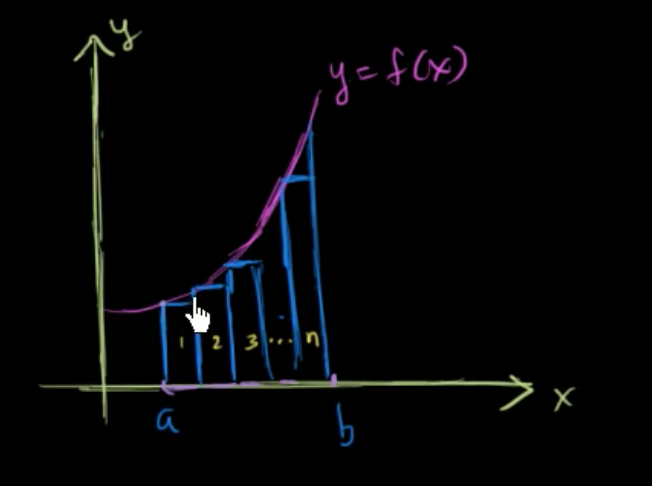 y
y = f(x)
1 2 3 ... n
x
a b